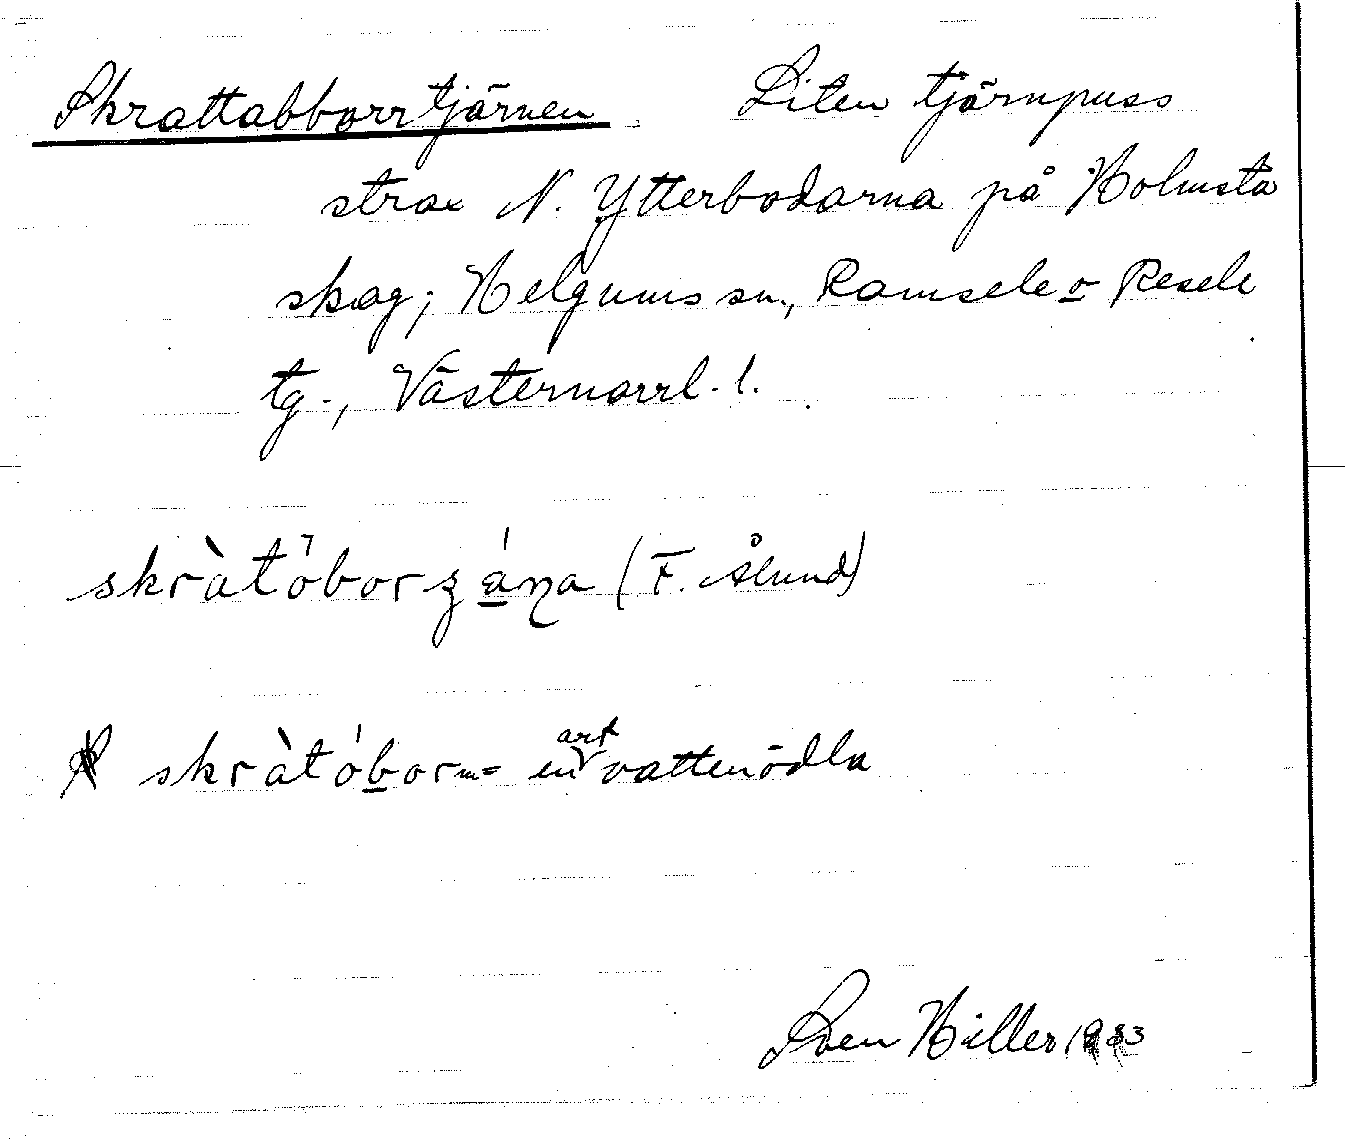 Skrattabborrtjärnen Liten tjärnpuss
strax N. Ytterbodarna på Holmsta
skog; Helgums sn., Ramsele o Resele
tg., Västernorrl. l.
skràtöborʒáṇa (F. Ålund)
skràtóbor = en art vattenödla
Sven Hiller 1933